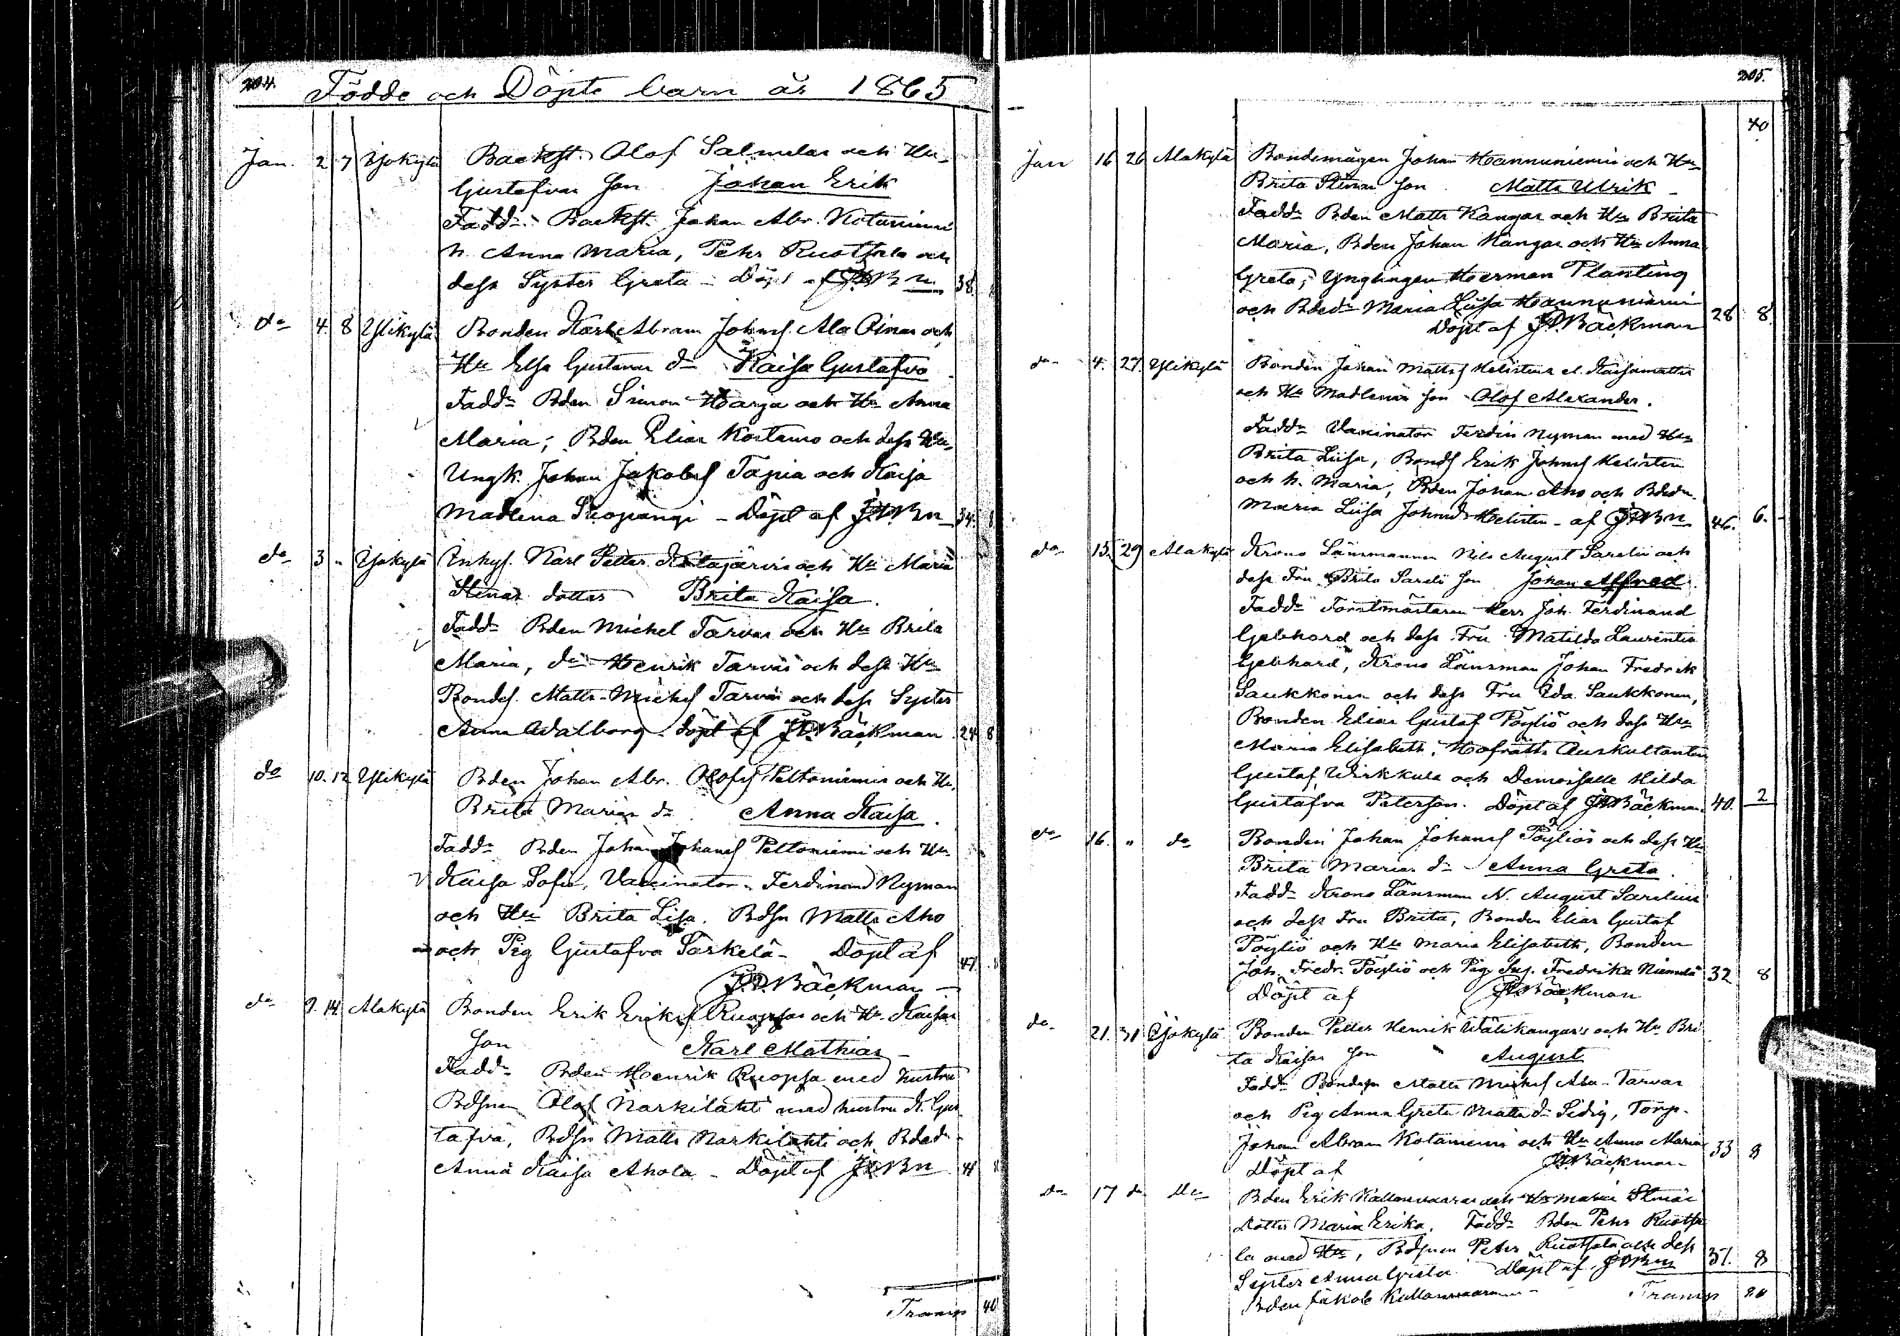 204.
Födde och Döpte barn år 1865
Jan. 2 7 Yjokylä Backst. Olof Salmelas och Hu
Gustafvas son Johan Erik
Fadd. Backst. Johan Abr. Kotaniemi
h. Anna Maria, Pehr Ruotsala och
dess Syster Greta - Döpt af JPBn 38
do 4. 8 Ylikylä Bonden Karl Abram Johns. Ala Pinas och
Hu Elsa Gustavas dr Kaisa Gustafva
Fadd. Bden Simon Harja och Hu Anna
Maria; Bden Elias Kostamo och dess Hu
Ungk. Johan Jakobs. Tapia och Kaisa
Madlena - Döpt af JPBn 34.
do 3 " Yjokylä Inhys. Karl Petter Kotajärvis och Hu Maria
Stinas dotter Brita Kaisa.
Fadd. Bden Michel Tarvas och Hu Brita
Maria, do Henrik Tarvas och dess Hu
Bonds. Matts Michels Tarvas och dess Syster
Anna Walborg. Döpt af JPBäckman 24 8
do 10. 12 Ylikylä Bden Johan Abr. Olofs Peltoniemis och Hu
Brita Marias dr Anna Kaisa.
Fadd. Bden Johan Johans Peltoniemi och Hu
Kaisa Sofia, Vaccinator Ferdinand Nyman
och Hu Brita Lisa. Bdsn Matts Aho
och Pig Gustafva Särkelä - Döpt af
J.P.Bäckman 47
do 9. 14 Alakylä Bonden Erik Eriks Ruopsas och Hu Kaisas
son Karl Mathias
Fadd. Bden Henrik Ruopsa med hustru
Bdsnen Olof Narkilahti med hustru K. Gus
tafva, Bdsn Matts Narkilahti och Bdedr
Anna Kaisa Ahola - Döpt af JPBn 41
Transp 40
205.
40
Jan 16 26 Alakylä Bondemågen Johan Hannuniemis och Hu
Brita Stinas son Matts Ulrik
Fadd. Bden Matts Kangas och Hu Brita
Maria, Bden Johan Kangas och Hu Anna
Greta; Ynglingen Herman Planting
och Bdedr Maria Luisa Hannuniemi
Döpt af JPBäckman 28 8
do 4. 27. Ylikylä Bonden Johan Matts
och Hu Madlenas son Olof Alexander.
Fadd. Vaccinator Ferdin Nyman med Hu
Brita Luisa, Bonds Erik Johns
och h. Maria, Bden Johan Aho och Bdedr
Maria Luisa Johnsdr - af JPBn 46. 6.
do 15. 29 Alakylä Krono Länsmannen Nils August Sarelius och
dess Fru Brita Sarelii son Johan Alfred.
Fadd. Forstmästaren Herr Joh. Ferdinand
Gebhard och dess Fru Matilda Laurentia
Gebhard, Krono Länsman Johan Fredrik
Saukkonen och dess Fru Ida Saukkonen,
Bonden Elias Gustaf Pöyliö och dess Hu
Maria Elisabeth, Hofrätts Auskultanten
Gustaf Wirkkula och Demoiselle Hilda
Gustafva Peterson. Döpt af JPBäckman 40. 2
do 16. " do Bonden Johan Johans Pöyliös och dess Hu
Brita Marias dr Anna Greta.
Fadd. Krono Länsman N. August Sarelius
och dess Fru Brita, Bonden Elias Gustaf
Pöyliö och Hu Maria Elisabeth, Bonden
Joh. Fredr. Pöyliö och Pig. Fredrika Niemelä 32 8
Döpt af JPBäckman
do 21. 31 Yjokylä Bonden Petter Henrik Wälikangas's och Hu Bri
ta Kaisas son August
Fadd. Bondesn Matts Michels Ala-Tarvas
och Pig Anna Greta Matts dr Sidig, Torp.
Johan Abram Kotaniemi och Hu Anna Maria 33 8
Döpt af JPBäckman
do 17 do do Bden Erik Kallonvaaras och Hu Maria Stinas
dotter Maria Erika. Fadd. Bden Pehr Ruotsa
la med Hu, Bdsnen Peter Ruotsala och dess
Syster Anna Greta Döpt af JPBn 37. 8
Bden Jakob Kallonvaara
Transp